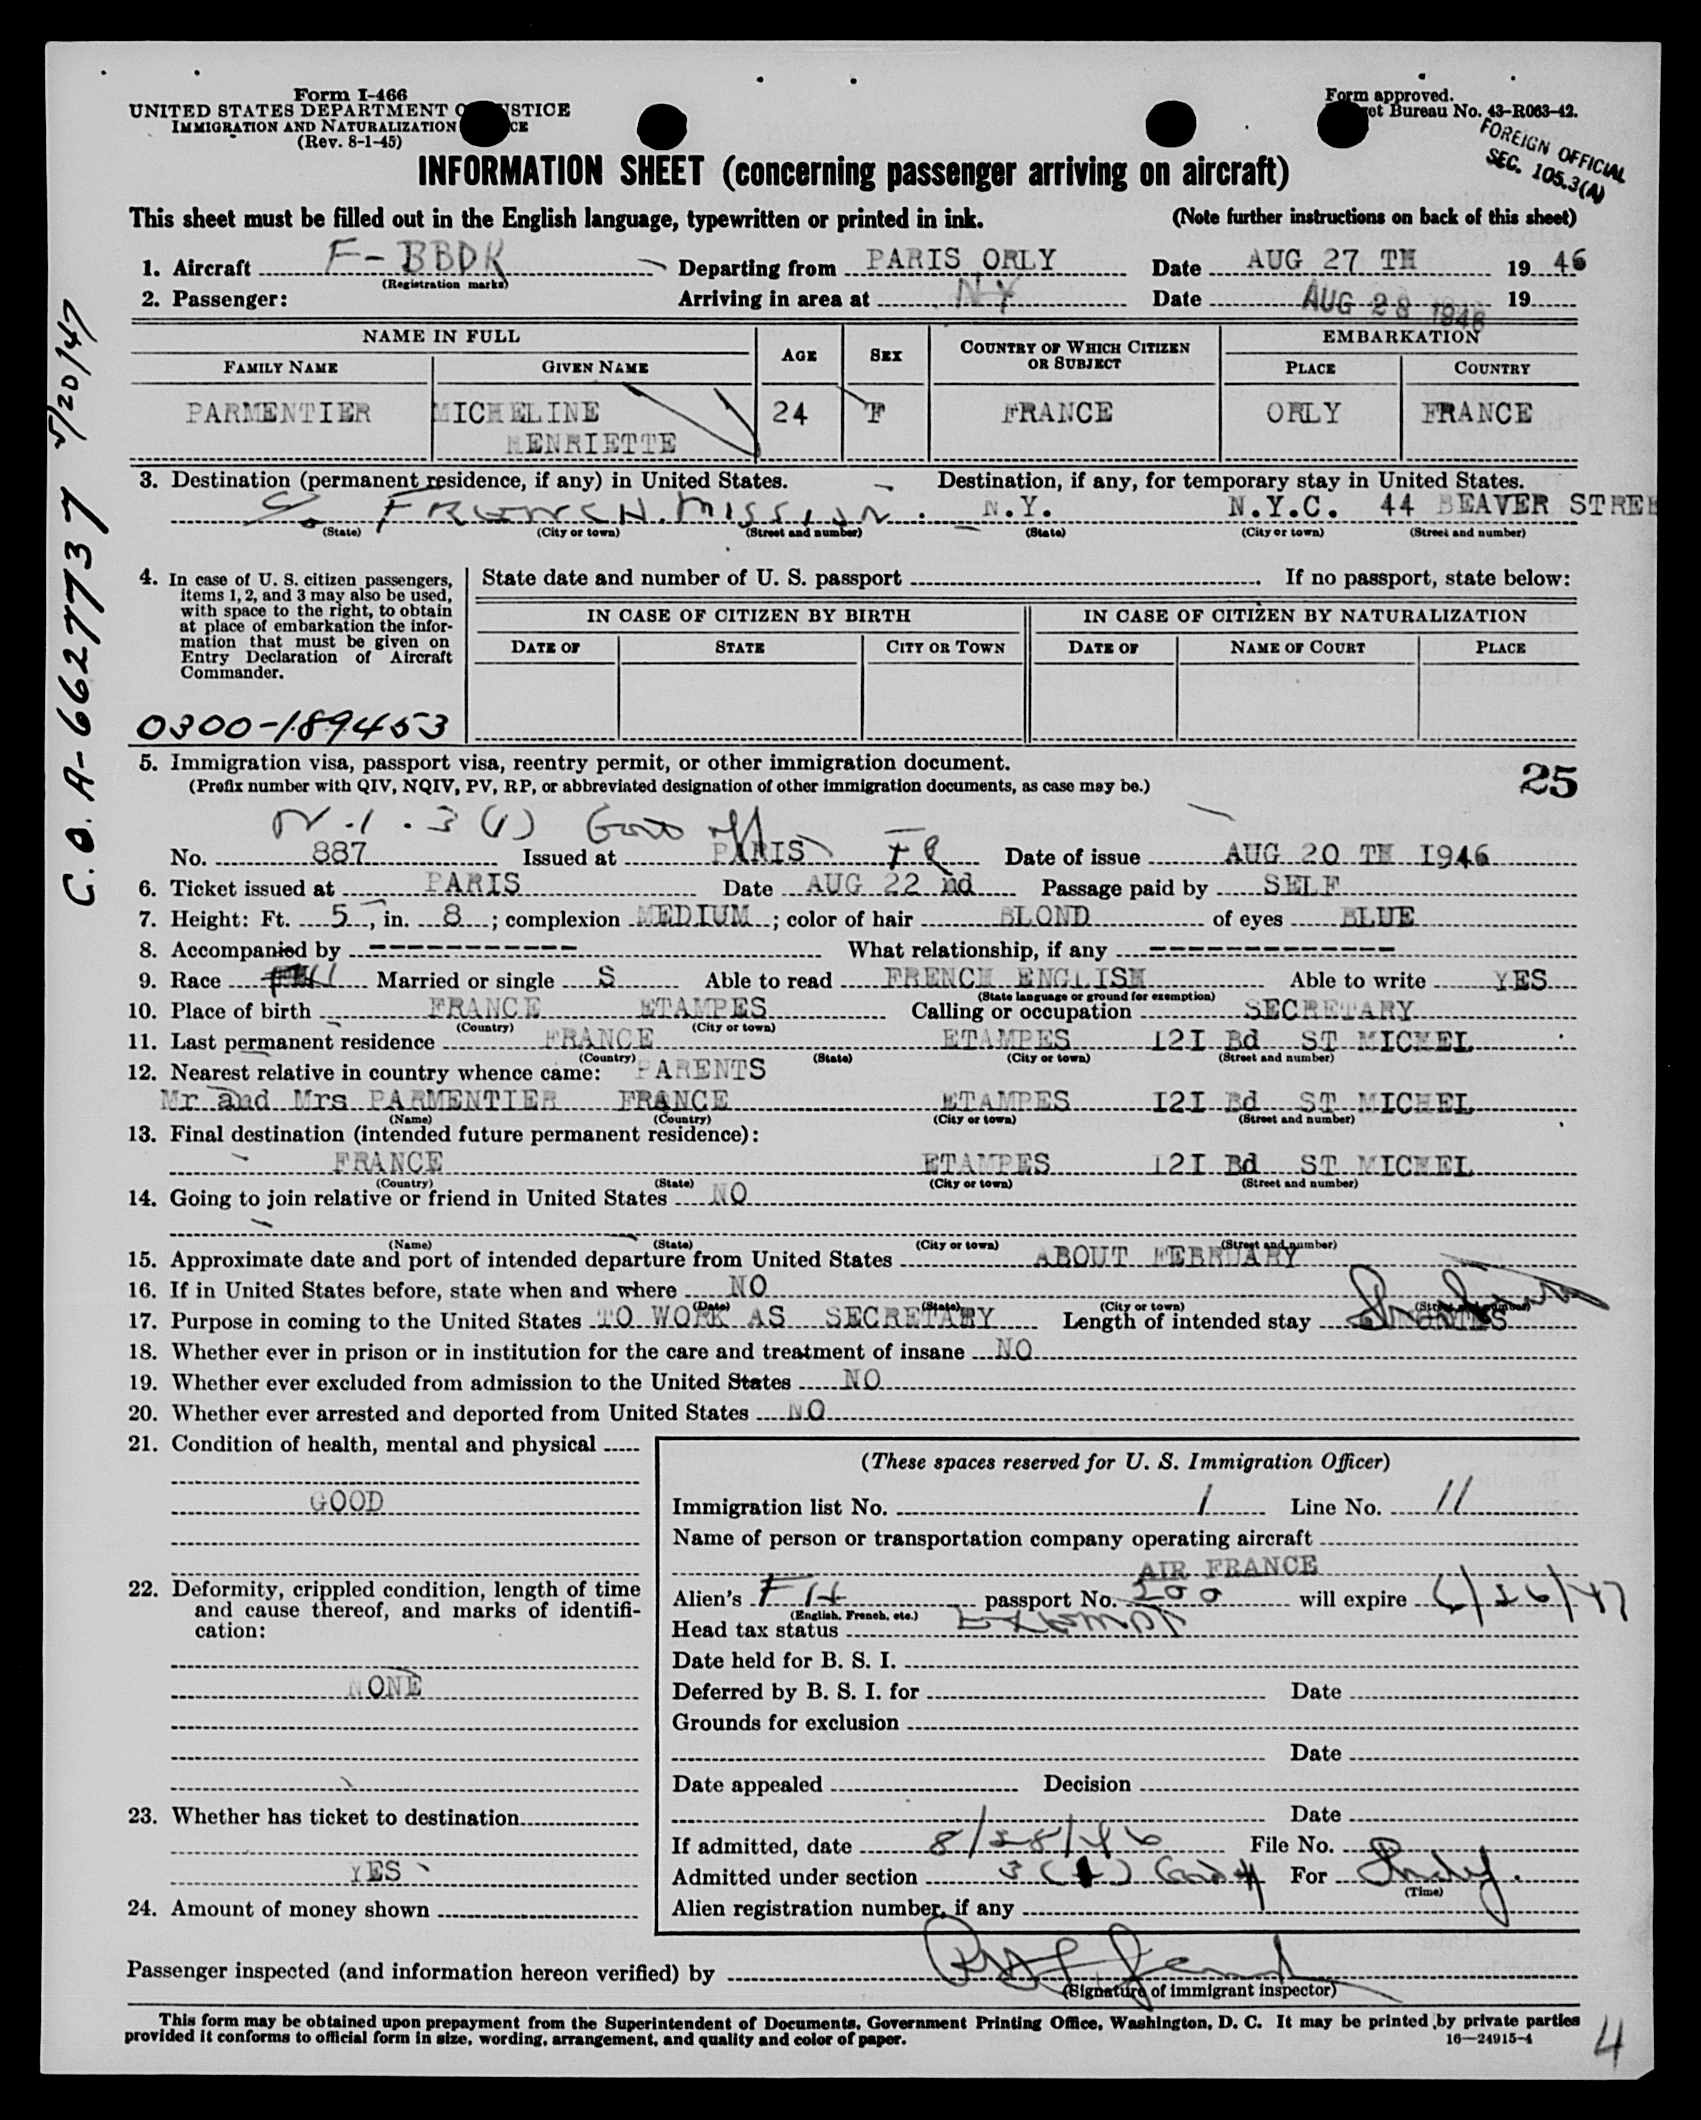 Form I-466
UNITED STATES DEPARTMENT OF JUSTICE
IMMIGRATION AND NATURALIZATION
(Rev. 8-1-45)
Form approved.
Bureau No. 43-R063-42.
FOREIGN OFFICIAL
SEC. 105.3(A)
INFORMATION SHEET (concerning passenger arriving on aircraft)
This sheet must be filled out in the English language, typewritten or printed in ink. (Note further instructions on back of this sheet)
1. Aircraft F-BBDK Departing from PARIS ORLY Date AUG 27 TH 19 46
(Registration marks)
2. Passenger: Arriving in area at NY Date AUG 28 1946 19
NAME IN FULL AGE SEX COUNTRY OF WHICH CITIZEN OR SUBJECT EMBARKATION
FAMILY NAME GIVEN NAME PLACE COUNTRY
PARMENTIER MICHELINE 24 F FRANCE ORLY FRANCE
HENRIETTE
3. Destination (permanent residence, if any) in United States. Destination, if any, for temporary stay in United States.
FRENCH MISSION N.Y. N.Y.C. 44 BEAVER STREE
(State) (City or town) (Street and number) (State) (City or town) (Street and number)
4. In case of U. S. citizen passengers, items 1, 2, and 3 may also be used, with space to the right, to obtain at place of embarkation the information that must be given on Entry Declaration of Aircraft Commander.
State date and number of U. S. passport . If no passport, state below:
IN CASE OF CITIZEN BY BIRTH IN CASE OF CITIZEN BY NATURALIZATION
DATE OF STATE CITY OR TOWN DATE OF NAME OF COURT PLACE
0300-189453
C.O. A-6627737 5/20/47
5. Immigration visa, passport visa, reentry permit, or other immigration document.
(Prefix number with QIV, NQIV, PV, RP, or abbreviated designation of other immigration documents, as case may be.)
25
3 (1) Govt off
No. 887 Issued at PARIS FR Date of issue AUG 20 TH 1946
6. Ticket issued at PARIS Date AUG 22 nd Passage paid by SELF
7. Height: Ft. 5, in. 8; complexion MEDIUM; color of hair BLOND of eyes BLUE
8. Accompanied by ------------ What relationship, if any --------------
9. Race Married or single S Able to read FRENCH ENGLISH Able to write YES
(State language or ground for exemption)
10. Place of birth FRANCE ETAMPES Calling or occupation SECRETARY
(Country) (City or town)
11. Last permanent residence FRANCE ETAMPES I2I Bd ST MICHEL
(Country) (State) (City or town) (Street and number)
12. Nearest relative in country whence came: PARENTS
Mr and Mrs PARMENTIER FRANCE ETAMPES I2I Bd ST MICHEL
(Name) (Country) (City or town) (Street and number)
13. Final destination (intended future permanent residence):
FRANCE ETAMPES I2I Bd ST MICHEL
(Country) (State) (City or town) (Street and number)
14. Going to join relative or friend in United States NO
(Name) (State) (City or town) (Street and number)
15. Approximate date and port of intended departure from United States ABOUT FEBRUARY
16. If in United States before, state when and where NO
(Date) (State) (City or town) (Street and number)
17. Purpose in coming to the United States TO WORK AS SECRETARY Length of intended stay
18. Whether ever in prison or in institution for the care and treatment of insane NO
19. Whether ever excluded from admission to the United States NO
20. Whether ever arrested and deported from United States NO
21. Condition of health, mental and physical
GOOD
22. Deformity, crippled condition, length of time and cause thereof, and marks of identification:
NONE
23. Whether has ticket to destination
YES
24. Amount of money shown
(These spaces reserved for U. S. Immigration Officer)
Immigration list No. 1 Line No. 11
Name of person or transportation company operating aircraft
AIR FRANCE
Alien's passport No. 200 will expire 6/26/47
(English, French, etc.)
Head tax status Exempt
Date held for B. S. I.
Deferred by B. S. I. for Date
Grounds for exclusion
Date
Date appealed Decision
Date
If admitted, date 8/28/46 File No.
Admitted under section 3 (1) Govt off For
(Time)
Alien registration number, if any
Passenger inspected (and information hereon verified) by
(Signature of immigrant inspector)
This form may be obtained upon prepayment from the Superintendent of Documents, Government Printing Office, Washington, D. C. It may be printed by private parties
provided it conforms to official form in size, wording, arrangement, and quality and color of paper. 16—24915-4
4